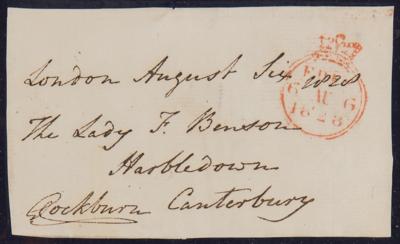 London August Six 1828
The Lady F. Benson
Harbledown
Cockburn Canterbury
FREE
6 AU 6
1828